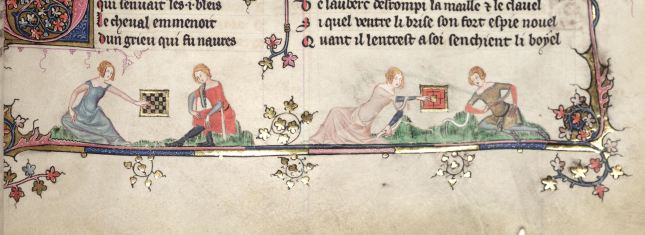 qui seruait les .i. bleis
le cheual emmenoit
dun grieu qui fu naures
le laubert destrompi la maille z le clauel
S i quel ventre li brise son fort espie nouel
Q uant il lentrest a soi senchient li boyel